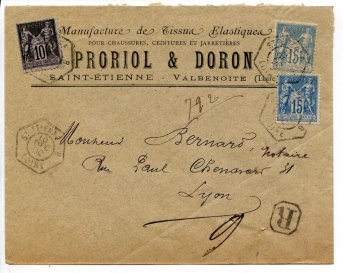 Manufacture de Tissus Elastiques
POUR CHAUSSURES, CEINTURES ET JARRETIÈRES
PRORIOL & DORON
SAINT-ÉTIENNE - VALBENOITE (Loire)
10
15
15
792
Monsieur Bernard, Notaire
Rue Paul Chenavard
Lyon
R
LOIRE